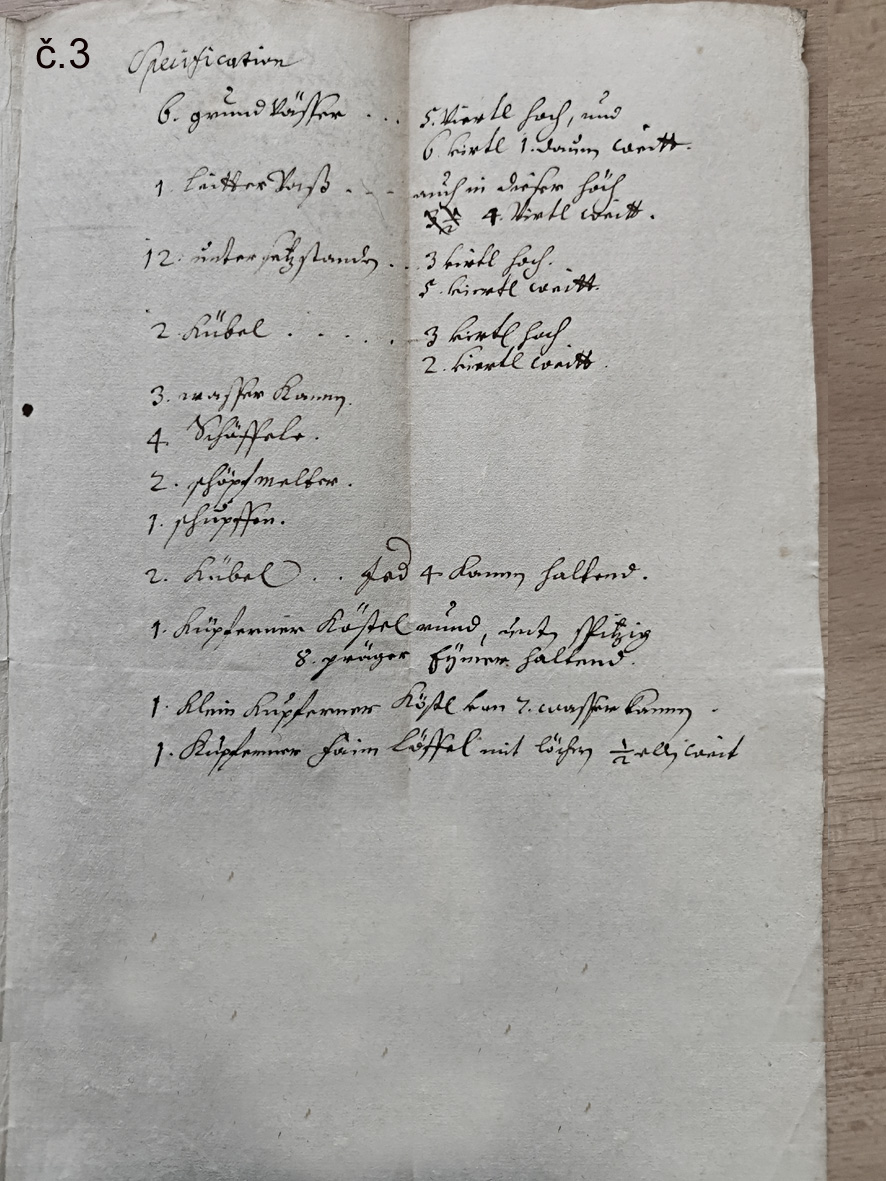 č.3
Specification
6. grund Vässer . . . 5. Viertl hoch, und
6 viertl 1. daum weitt.
1 leitter Vaß . - - auch in dieser höch
4 Virtl weitt.
12. untersetzstanden . . 3 virtl hoch.
5. viertl weitt.
2 Kübel . . . . . 3 virtl hoch
2. viertl weitt.
3. wasser Kannen.
4 Schäffele.
2. schöpf melter.
1. schupffen.
2. Kübel . . . Jed 4 Kannen haltend.
1. Kupferner Köstel rund, unten spitzig
8. prager Eymer haltend.
1. Klein Kupferner Köstl von 7. wasser kannen.
1. Kupferner faim löffel mit löchern 1/2 ellen weit